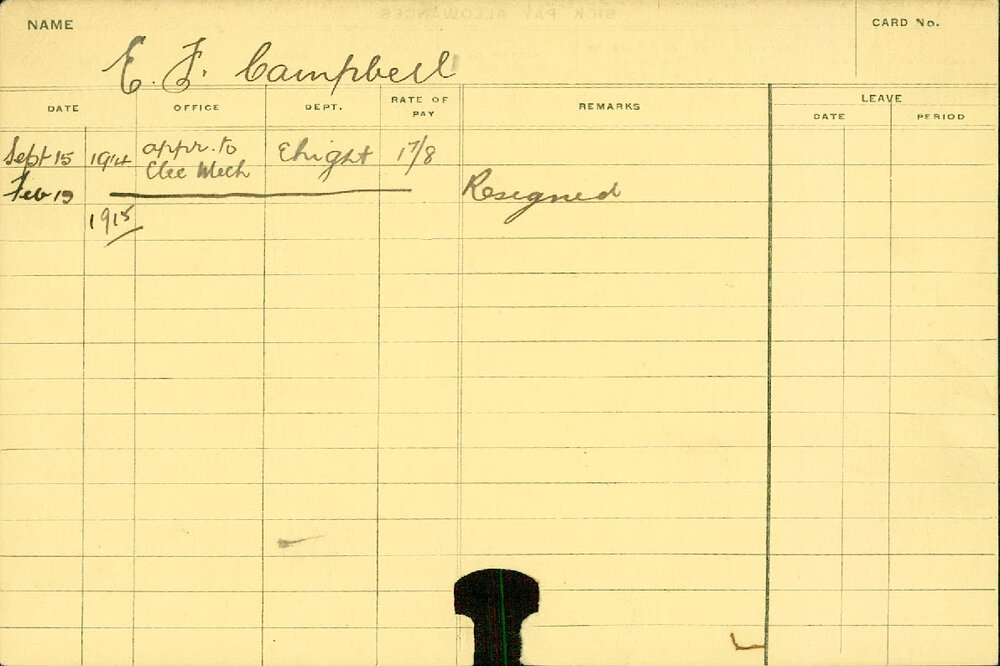 NAME
CARD No.
E. F. Campbell
DATE OFFICE DEPT. RATE OF PAY REMARKS LEAVE
DATE PERIOD
Sept 15 1914 appr. to Elec Mech Elight 17/8
Feb 19 Resigned
1915